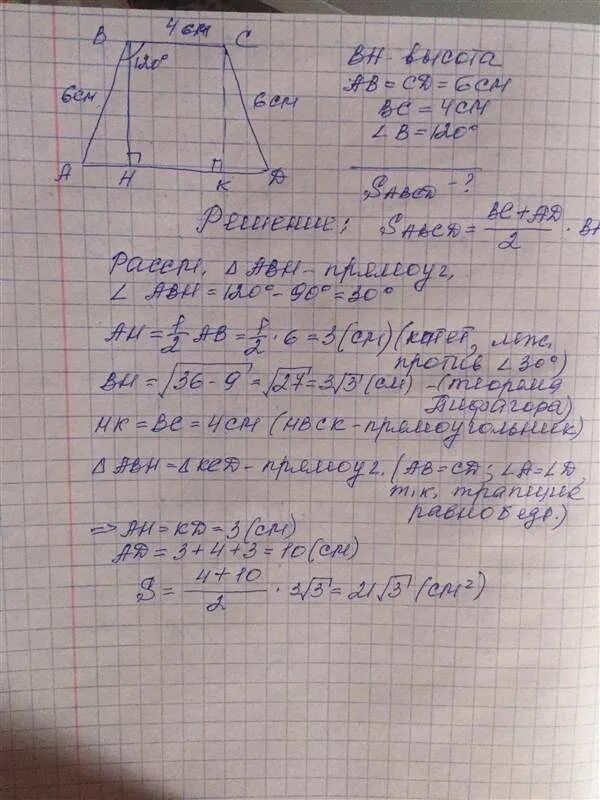 4 см
B C
120°
6см 6см
A H K D
BH - высота
AB = CD = 6см
BC = 4см
∠ B = 120°
S ABCD - ?
Решение: S ABCD = BC + AD / 2 · BH
Рассм. △ ABH - прямоуг.
∠ ABH = 120° - 90° = 30°
AH = 1/2 AB = 1/2 · 6 = 3 (см) (катет, леж.
против ∠ 30°)
BH = √36 - 9 = √27 = 3√3 (см) - (теорема
Пифагора)
HK = BC = 4см (HBCK - прямоугольник)
△ ABH = △ KCD - прямоуг. (AB = CD; ∠A = ∠D,
т.к. трапеция
равнобедр.)
⇒ AH = KD = 3 (см)
AD = 3 + 4 + 3 = 10 (см)
S = 4 + 10 / 2 · 3√3 = 21√3 (см²)